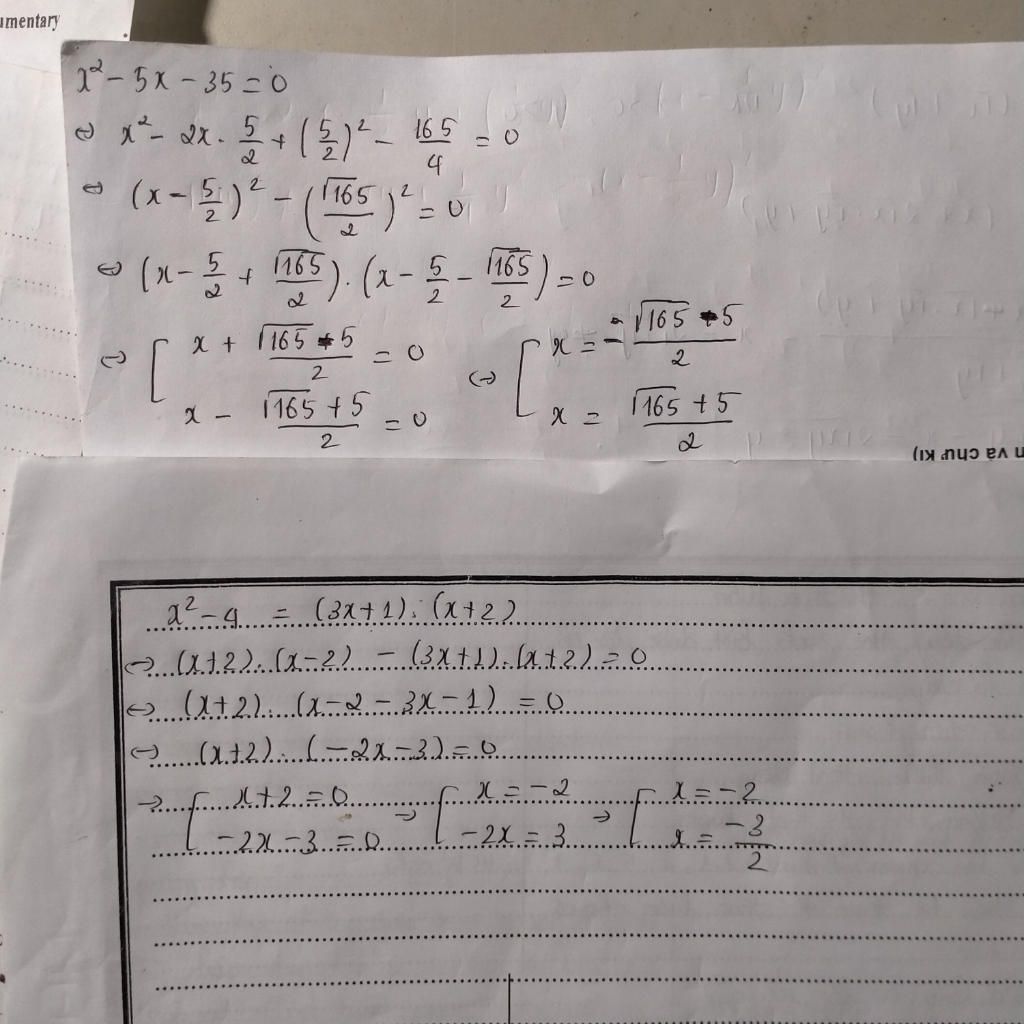 umentary
x² - 5x - 35 = 0
⇔ x² - 2x . 5/2 + (5/2)² - 165/4 = 0
⇔ (x - 5/2)² - (√165/2)² = 0
⇔ (x - 5/2 + √165/2) . (x - 5/2 - √165/2) = 0
⇔ [ x + (√165 - 5)/2 = 0 ⇔ [ x = -(√165 - 5)/2
x - (√165 + 5)/2 = 0 x = (√165 + 5)/2
n và chữ kí)
x² - 4 = (3x+1). (x+2)
⇔ (x+2). (x-2) - (3x+1). (x+2) = 0
⇔ (x+2). (x-2-3x-1) = 0
⇔ (x+2). (-2x-3) = 0
→ [ x+2 = 0 → [ x = -2 → [ x = -2
-2x-3 = 0 -2x = 3 x = -3/2